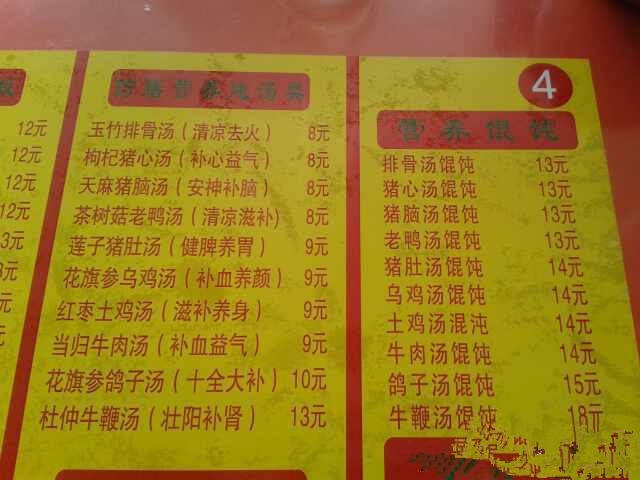 12元
12元
12元
12元
3元
药膳营养炖汤类
玉竹排骨汤（清凉去火） 8元
枸杞猪心汤（补心益气） 8元
天麻猪脑汤（安神补脑） 8元
茶树菇老鸭汤（清凉滋补） 8元
莲子猪肚汤（健脾养胃） 9元
花旗参乌鸡汤（补血养颜） 9元
红枣土鸡汤（滋补养身） 9元
当归牛肉汤（补血益气） 9元
花旗参鸽子汤（十全大补） 10元
杜仲牛鞭汤（壮阳补肾） 13元
4
营养馄饨
排骨汤馄饨 13元
猪心汤馄饨 13元
猪脑汤馄饨 13元
老鸭汤馄饨 13元
猪肚汤馄饨 14元
乌鸡汤馄饨 14元
土鸡汤混沌 14元
牛肉汤馄饨 14元
鸽子汤馄饨 15元
牛鞭汤馄饨 18元